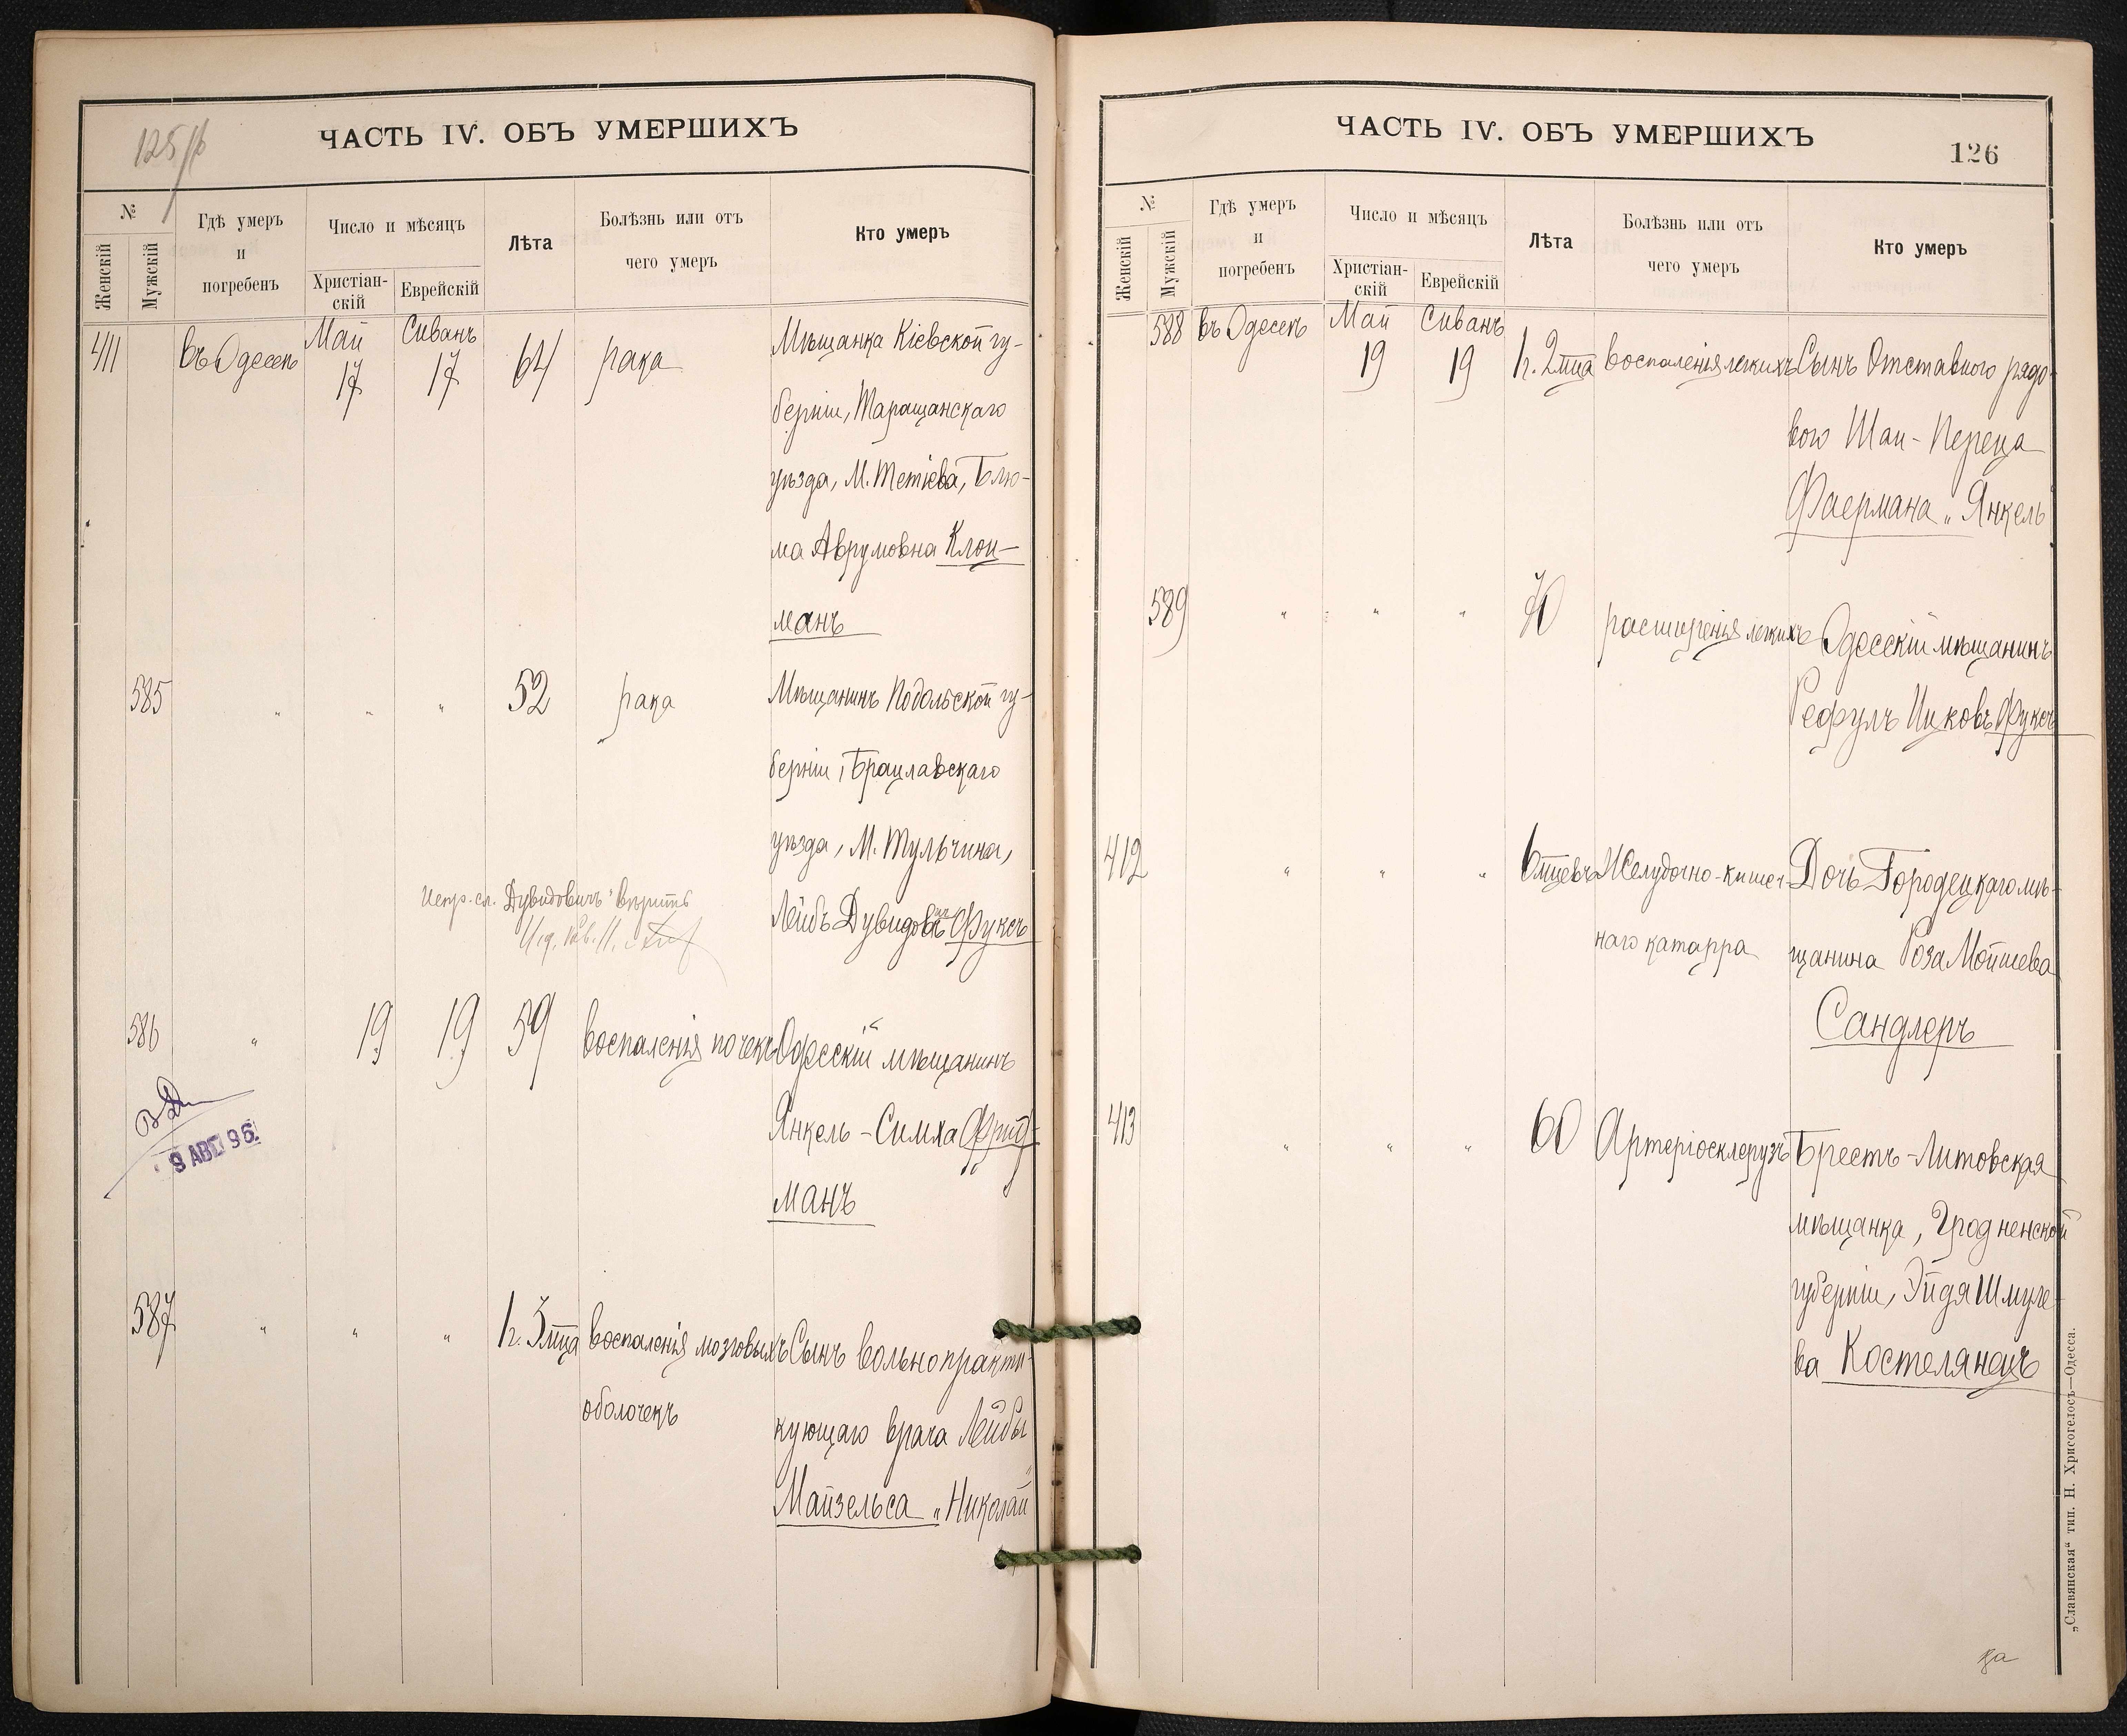 125 об
ЧАСТЬ IV. ОБЪ УМЕРШИХЪ
№
Женскій
Мужскій
Гдѣ умеръ
и
погребенъ
Число и мѣсяцъ
Христіан-
скій
Еврейскій
Лѣта
Болѣзнь или отъ
чего умеръ
Кто умеръ
411
въ Одессѣ
Май
17
Сиванъ
17
64
рака
Мѣщанка Кіевской гу-
берніи, Таращанскаго
уѣзда, М. Тетіева, Блю-
ма Аврумовна Клоц-
манъ
585
"
"
"
52
рака
Мѣщанинъ Подольской гу-
берніи, Брацлавскаго
уѣзда, М. Тульчина,
Лейбъ Дувидовъ Фуксъ
Испр. сл. Дувидовичъ вѣрить
586
"
19
19
59
воспаленія почекъ
Одесскій мѣщанинъ
Янкель-Симха Фрид-
манъ
9 АВГ 96
587
"
"
"
1 г. 3 мца
воспаленія мозговыхъ
оболочекъ
Сынъ вольнопракти-
кующаго врача Лейбы
Майзельса „Николай"
ЧАСТЬ IV. ОБЪ УМЕРШИХЪ
126
№
Женскій
Мужскій
Гдѣ умеръ
и
погребенъ
Число и мѣсяцъ
Христіан-
скій
Еврейскій
Лѣта
Болѣзнь или отъ
чего умеръ
Кто умеръ
588
въ Одессѣ
Май
19
Сиванъ
19
1 г. 2 мца
воспаленія легкихъ
Сынъ Отставного рядо-
вого Шаи-Переца
Фаермана „Янкель
589
"
"
"
70
расширенія легкихъ
Одесскій мѣщанинъ
Рефулъ Ицковъ Фуксъ
412
"
"
"
6 мцевъ
Желудочно-кишеч-
наго катарра
Дочь Городецкаго мѣ-
щанина Роза Мошева
Сандлеръ
413
"
"
"
60
Артеріосклерузъ
Брестъ-Литовская
мѣщанка, Гродненской
губерніи, Эйдя Шмуле-
ва Костелянецъ
„Славянская“ тип. Н. Хрисогелосъ—Одесса.